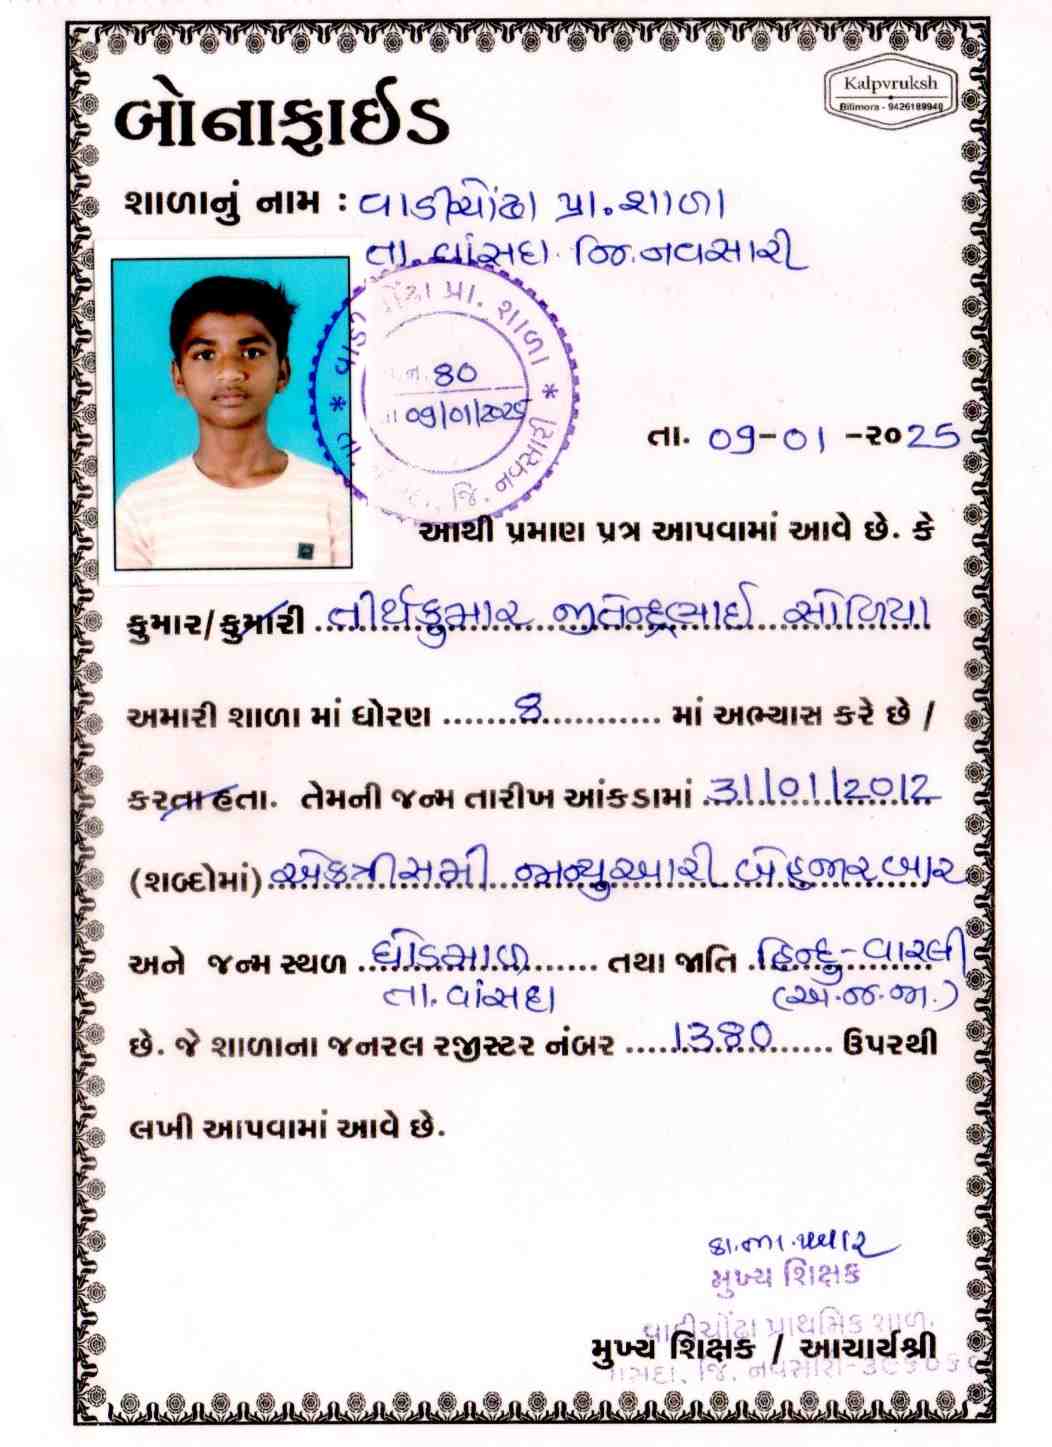 બોનાફાઈડ
Kalpvruksh
Bilimora - 9426189940
શાળાનું નામ : વાડીચોંઢા પ્રા. શાળા
તા. વાંસદા જિ. નવસારી
પ્રા. શાળા
જિ. નવસારી
80
09/01/2025
તા. 09-01 -૨૦25
આથી પ્રમાણ પત્ર આપવામાં આવે છે. કે
કુમાર/કુમારી તીર્થકુમાર જીતેન્દ્રભાઈ સોળિયા
અમારી શાળા માં ધોરણ 8 માં અભ્યાસ કરે છે /
કરતા હતા. તેમની જન્મ તારીખ આંકડામાં 31/01/2012
(શબ્દોમાં) એકત્રીસમી જાન્યુઆરી બે હજાર બાર
અને જન્મ સ્થળ ઘોડમાળ તથા જાતિ હિન્દુ-વારલી
તા. વાંસદા (અ.જ.જા.)
છે. જે શાળાના જનરલ રજીસ્ટર નંબર 1380 ઉપરથી
લખી આપવામાં આવે છે.
મુખ્ય શિક્ષક
વાડીચોંઢા પ્રાથમિક શાળા
મુખ્ય શિક્ષક / આચાર્યશ્રી
જિ. નવસારી